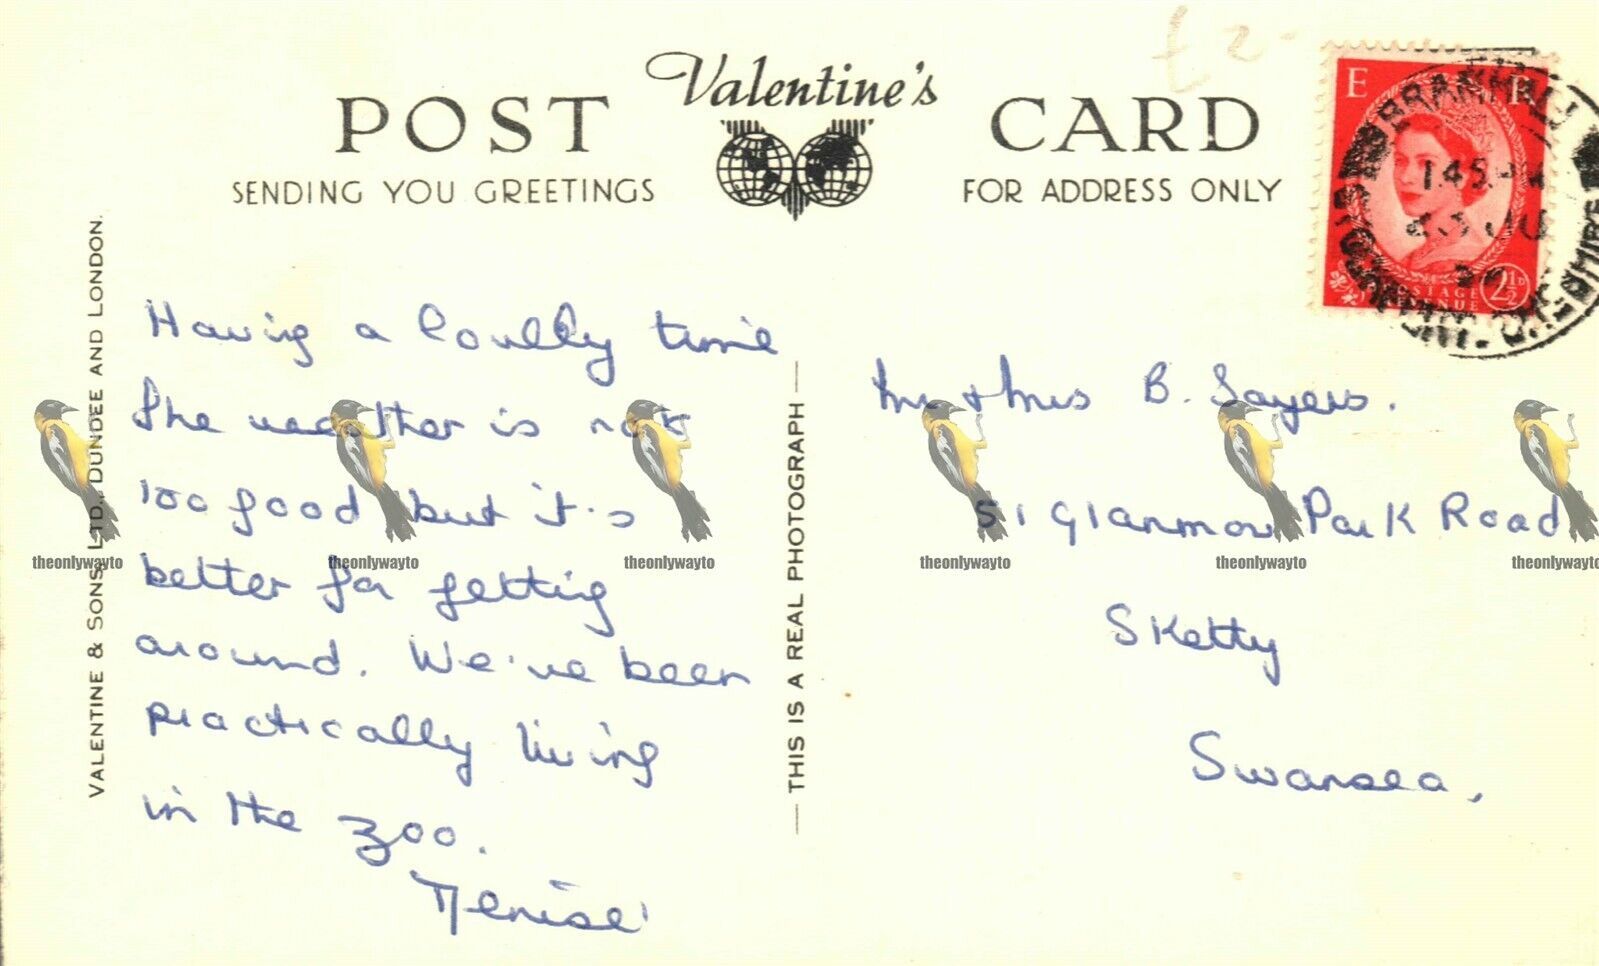 £2-
Valentine's
POST CARD
SENDING YOU GREETINGS
FOR ADDRESS ONLY
E R
POSTAGE
REVENUE
2½D
BRAMHALL
1.45 PM
STOCKPORT
VALENTINE & SONS LTD. DUNDEE AND LONDON.
Having a lovely time
The weather is not
too good but it's
better for getting
around. We've been
practically living
in the zoo.
Denise
THIS IS A REAL PHOTOGRAPH
Mr & Mrs B. Sayers.
51 Glanmor Park Road
Sketty
Swansea,
theonlywayto theonlywayto theonlywayto theonlywayto theonlywayto theonlywayto